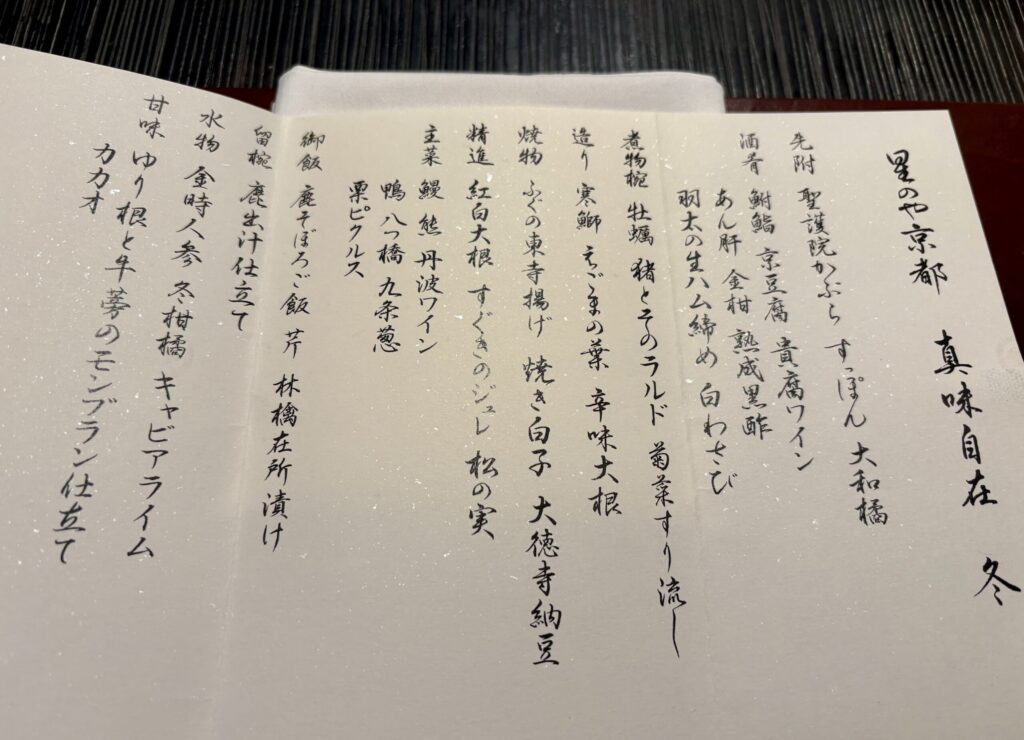 星のや京都 真味自在 冬
先附 聖護院かぶら すっぽん 大和橘
酒肴 鮒鮨 京豆腐 貴腐ワイン
あん肝 金柑 熟成黒酢
羽太の生ハム締め 白わさび
煮物椀 牡蠣 猪とそのラルド 菊菜すり流し
造り 寒鰤 えごまの葉 辛味大根
焼物 ふぐの東寺揚げ 焼き白子 大徳寺納豆
精進 紅白大根 すぐきのジュレ 松の実
主菜 鰻 熊 丹波ワイン
鴨 八つ橋 九条葱
栗ピクルス
御飯 鹿そぼろご飯 芹 林檎在所漬け
留椀 鹿出汁仕立て
水物 金時人参 冬柑橘 キャビアライム
甘味 ゆり根と牛蒡のモンブラン仕立て
カカオ